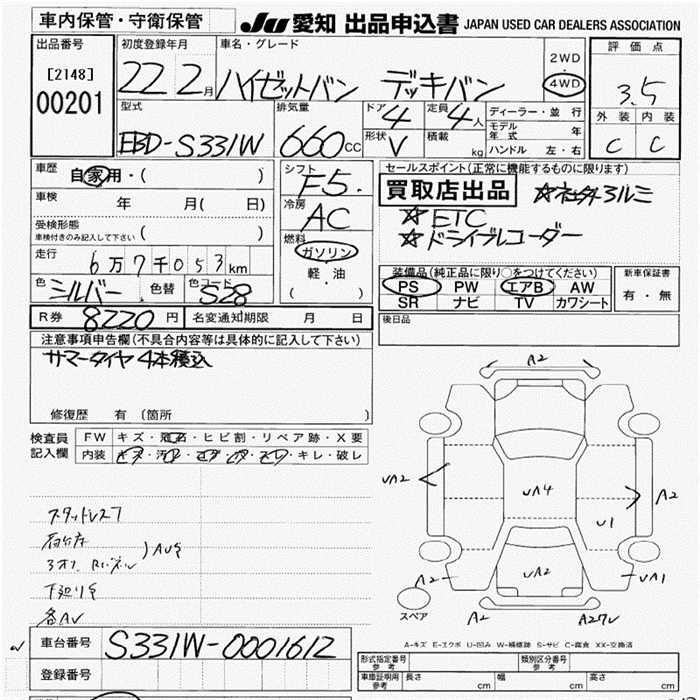 車内保管・守衛保管
JU 愛知 出品申込書 JAPAN USED CAR DEALERS ASSOCIATION
出品番号
[2148]
00201
初度登録年月
22 2月
車名・グレード
ハイゼットバン デッキバン
2WD
4WD
評価点
3.5
外装 内装
C C
型式
EBD-S331W
排気量
660cc
ドア 4
形状 V
定員 4人
積載 kg
ディーラー・並行
モデル年式 年
ハンドル 左・右
車歴 自家用・( )
車検 年 月( 日)
受検形態
車検付きのみ記入して下さい ( )
走行 6万7千053km
色 シルバー 色替 色コード S28
R券 8220円 名変通知期限 月 日
シフト F5.
冷房 AC
燃料
ガソリン
軽・油
( )
セールスポイント(正常に機能するものに限ります)
買取店出品 ☆社外アルミ
☆ETC
☆ドライブレコーダー
装備品(純正品に限り○をつけてください)
PS PW エアB AW
SR ナビ TV カワシート
新車保証書
有・無
後日品
注意事項申告欄(不具合内容等は具体的に記入して下さい)
サマータイヤ4本積込
修復歴 有 (箇所 )
検査員記入欄
FW キズ・飛石・ヒビ割・リペア跡・X要
内装 キズ・汚レ・コゲ・スレ・キレ・破レ
スタッドレス7
荷台
下廻りサ
各AU
A2
UA2
UA4
A2
U1
UA2
A2
UA1
スペア
A2
A-キズ E-エクボ U-凹み W-補修跡 S-サビ C-腐食 XX-交換済
車台番号 S331W-0001612
登録番号
形式指定番号 参考
類別区分番号 参考
車庫証明用 参考 長さ cm 幅 cm 高さ cm